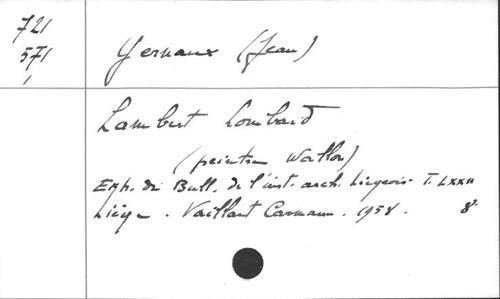 721
571
1
Yernaux (Jean)
Lambert Lombard
(peintre Wallon)
Exp. du Bull. de l'inst. arch. Liégeois T. LXXII
Liège. Vaillant Carmanne. 1958. 8°